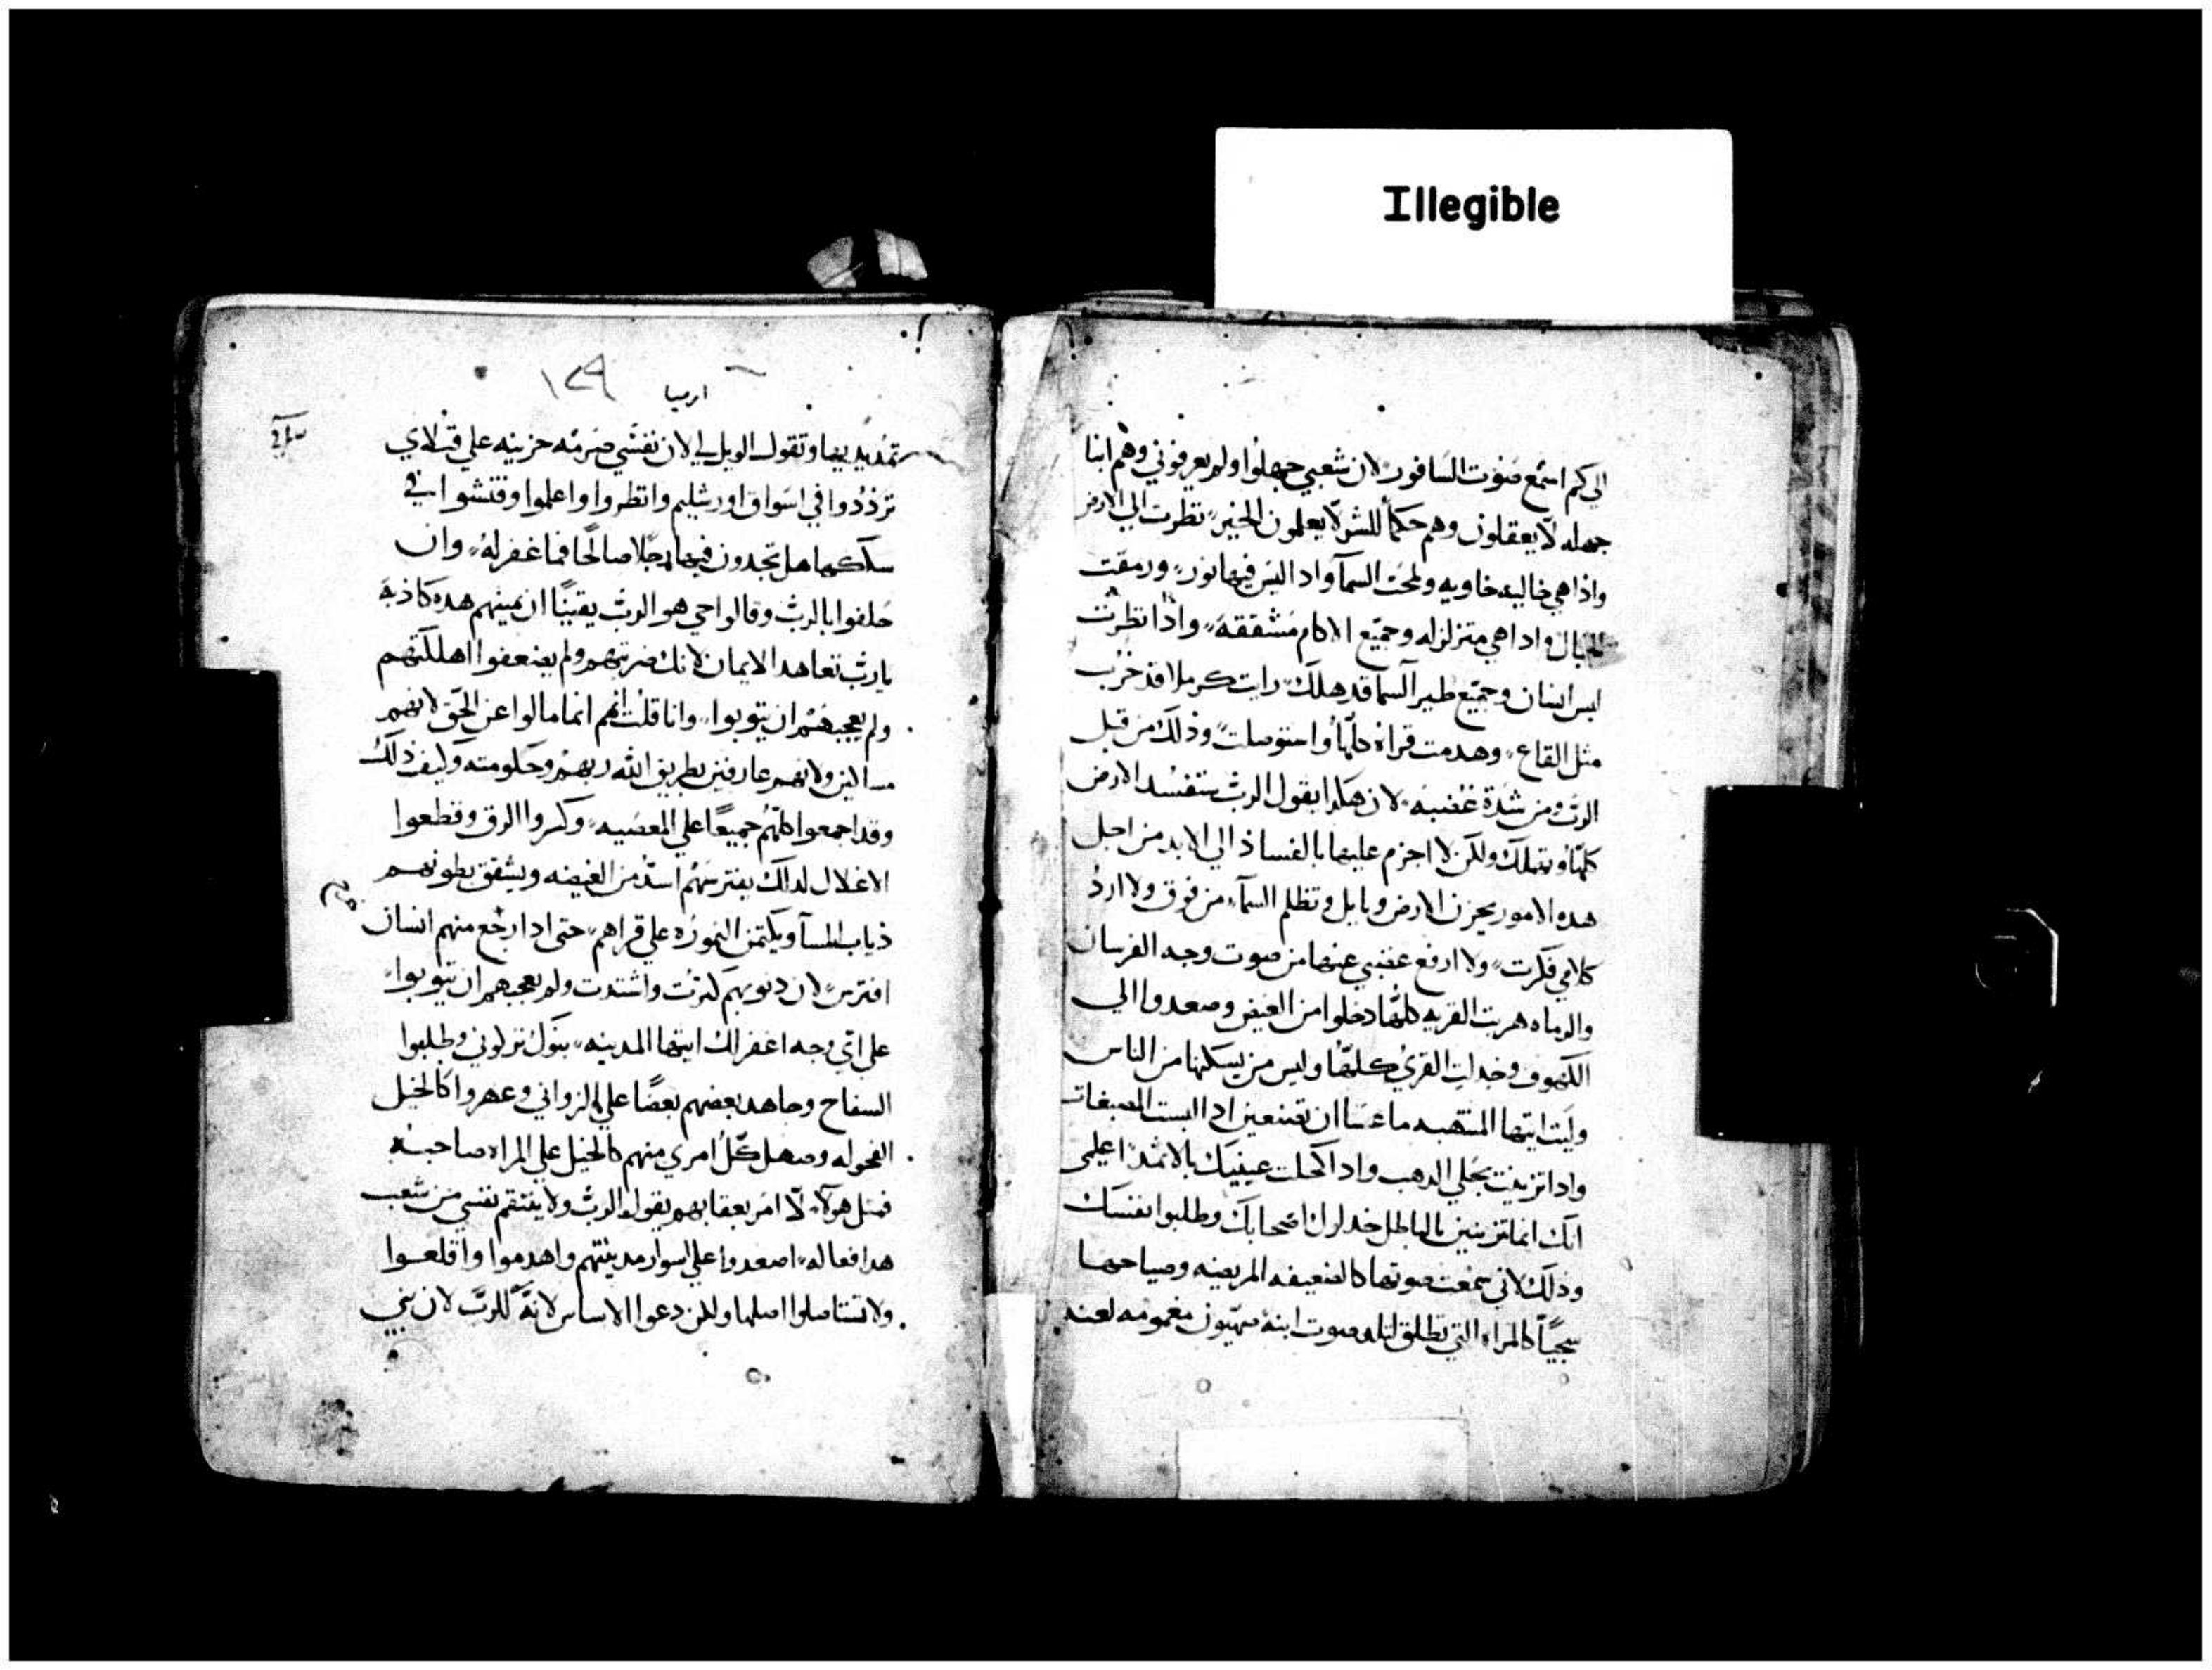 Illegible
الي كم اسمع صوت السافور لان شعبي جهلوا ولم يعرفوني وهم ابنا
جهله لا يعقلون وهم حكما للشر لا يعلمون الخير نظرت الي الارض
واذا هي خاليه خاويه ولمحت السما واد اليس فيها نور ورمقت
الجبال واداهي متزلزله وجميع الاكام مشققه واذا نظرت
ليس انسان وجميع طير السما قد هلك رايت كرملا قد خرب
مثل القاع وهدمت قراه كلها واستوصلت وذلك من قبل
الرب ومن شدة غضبه لان هكدا يقول الرب ستفسد الارض
كلها وتهلك ولكن لا اجزم عليها بالفساد الي الابد من اجل
هده الامور يحزن الارض وبابل وتظلم السما من فوق ولا ارد
كلامي فكرت ولا ارفع غضبي عنها من صوت وجه الفرسان
والرماه هربت القريه كلها دخلوا من الغيض وصعدوا الي
الكهوف وخدلت القري كلها وليس من يسكنها من الناس
وليت ايتها المنتهبه ما عسا ان تصنعين ادا البست الصبغات
وادا تزينت بحلي الدهب واد اكحلت عينيك بالاثمد اعلمي
انك انما تزينين بالباطل خدلوك اصحابك وطلبوا نفسك
وذلك لاني سمعت صوتها كالضعيفه المريضه وصياحها
كالمراه التي تطلق لتلد صوت ابنة صهيون مغمومه
١٢٩
ارميا
تمد يديها وتقول الويل لي لان نفسي حزينه علي قتلاي
ترددوا في اسواق اورشليم وانظروا واعلموا وفتشوا في
سككها هل تجدون فيها رجلا صالحا فما غفر له وان
حلفوا بالرب وقالوا حي هو الرب يقينا ان يمينهم هده كاذبة
يارب تعاهد الايمان لانك ضربتهم ولم يضعفوا اهلكتهم
ولم يعجبهم ان يتوبوا وانا قلت انهم انما مالوا عن الحق لانهم
مساكين ولانهم عارفين بطريق الله ربهم وحكومته وكيف ذلك
وقد اجمعوا كلهم جميعا علي المعصيه وكسروا الرق وقطعوا
الاغلال لدلك يفترسهم اسد من الغيضه ويشقق بطونهم
ذياب المسا ويكتمن النموره علي قراهم حتى ادا رجع منهم انسان
افترس لان دنوبهم كبرت واشتدت ولم يعجبهم ان يتوبوا
علي اي وجه اغفر لك ايتها المدينه بنوك تركوني وطلبوا
السفاح وجاهد بعضهم بعضا علي الزواني وعهروا كالخيل
الفحوله وصهل كل امري منهم كالخيل علي المراه صاحبه
فمثل هولا لا امر بعقابهم يقول الرب ولا ينتقم نفسي من شعب
هدا فعاله اصعدوا علي اسوار مدينتهم واهدموا واقلعوا
ولا تستاصلوا اصلها ولكن دعوا الاساس لانه للرب لان بني